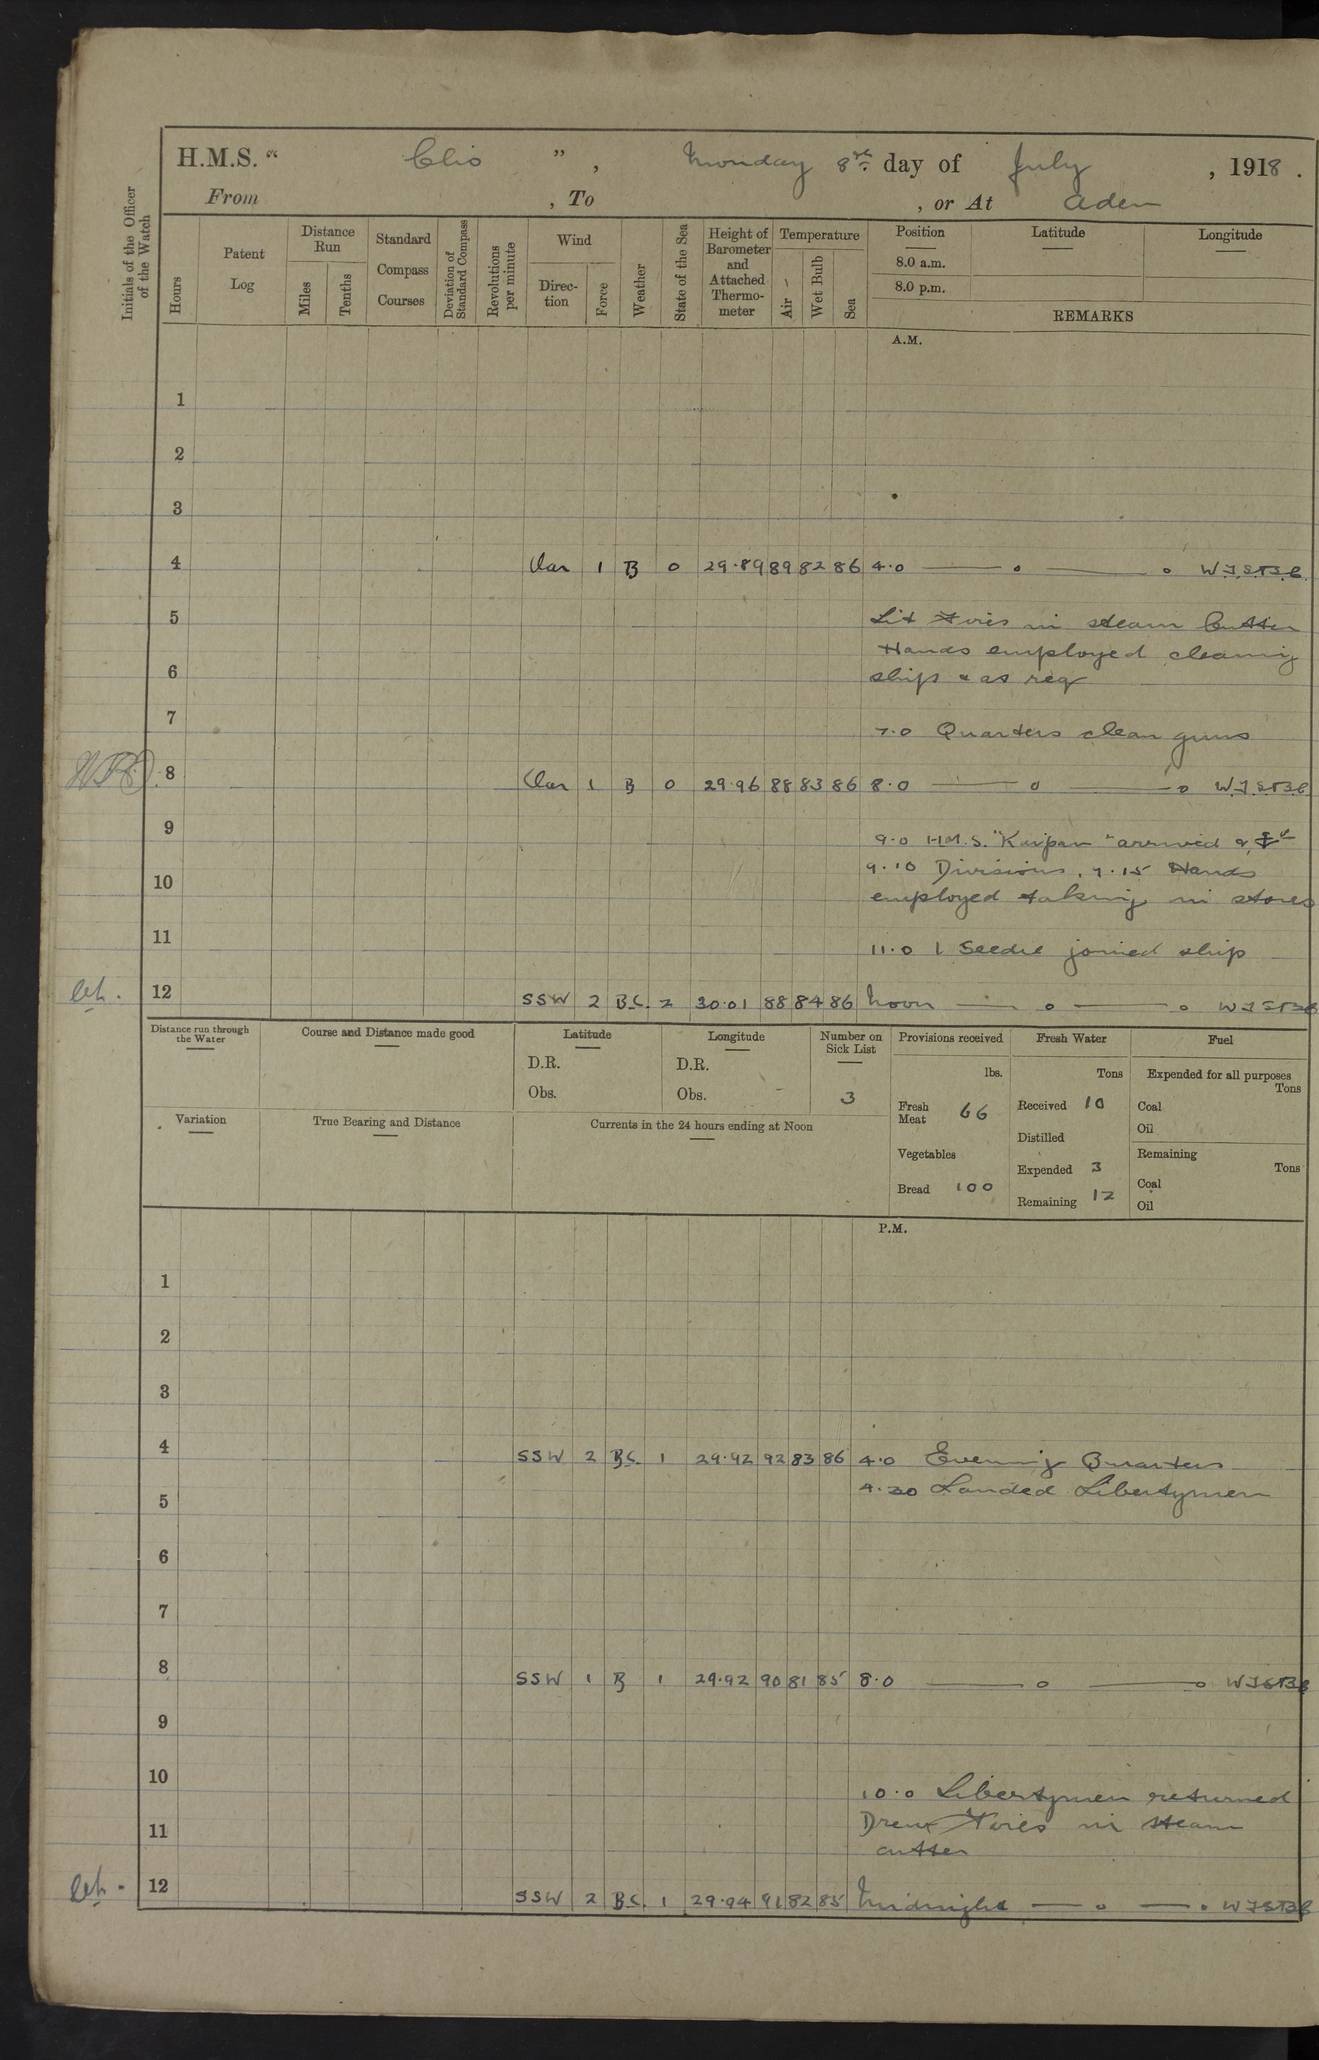 H.M.S. “ Clio ” , Monday 8th day of July , 1918 .
From , To , or At Aden
Initials of the Officer of the Watch
Hours
Patent Log
Distance Run
Miles
Tenths
Standard Compass Courses
Deviation of Standard Compass
Revolutions per minute
Wind
Direc-tion
Force
Weather
State of the Sea
Height of Barometer and Attached Thermo-meter
Temperature
Air
Wet Bulb
Sea
Position
8.0 a.m.
8.0 p.m.
Latitude
Longitude
REMARKS
A.M.
1
2
3
4 Var 1 B 0 29.89 89 82 86 4.0 — o — o
5 Lit Fires in steam Cutter
Hands employed cleaning
6 ship & as req
7 7.0 Quarters clean guns
8 Var 1 B 0 29.96 88 83 86 8.0 — o — o
9 9.0 H.M.S. "Kaipan" arrived &
9.10 Divisions, 9.15 Hands
10 employed taking in stores
11 11.0 1 Seedie joined ship
12 SSW 2 B.C. 2 30.01 88 84 86 Noon — o — o
Distance run through the Water
Course and Distance made good
Latitude
D.R.
Obs.
Longitude
D.R.
Obs.
Number on Sick List
3
Provisions received
lbs.
Fresh Meat 66
Vegetables
Bread 100
Fresh Water
Tons
Received 10
Distilled
Expended 3
Remaining 12
Fuel
Expended for all purposes
Tons
Coal
Oil
Remaining
Tons
Coal
Oil
Variation
True Bearing and Distance
Currents in the 24 hours ending at Noon
P.M.
1
2
3
4 SSW 2 B.C. 1 29.92 92 83 86 4.0 Evening Quarters
4.30 Landed Libertymen
5
6
7
8 SSW 1 B 1 29.92 90 81 85 8.0 — o — o
9
10 10.0 Libertymen returned
11 Drew Fires in steam
cutter
12 SSW 2 B.C. 1 29.94 91 82 85 Midnight — o — o